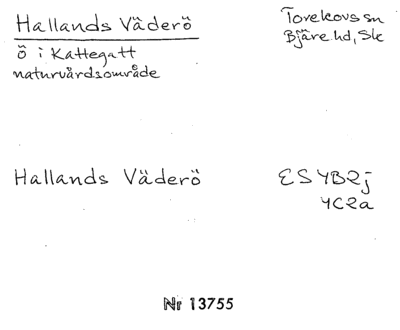 Hallands Väderö
Torekovs sn
ö i Kattegatt
Bjäre hd, Sk
naturvårdsområde
Hallands Väderö
ES 4B2j
4C2a
Nr 13755